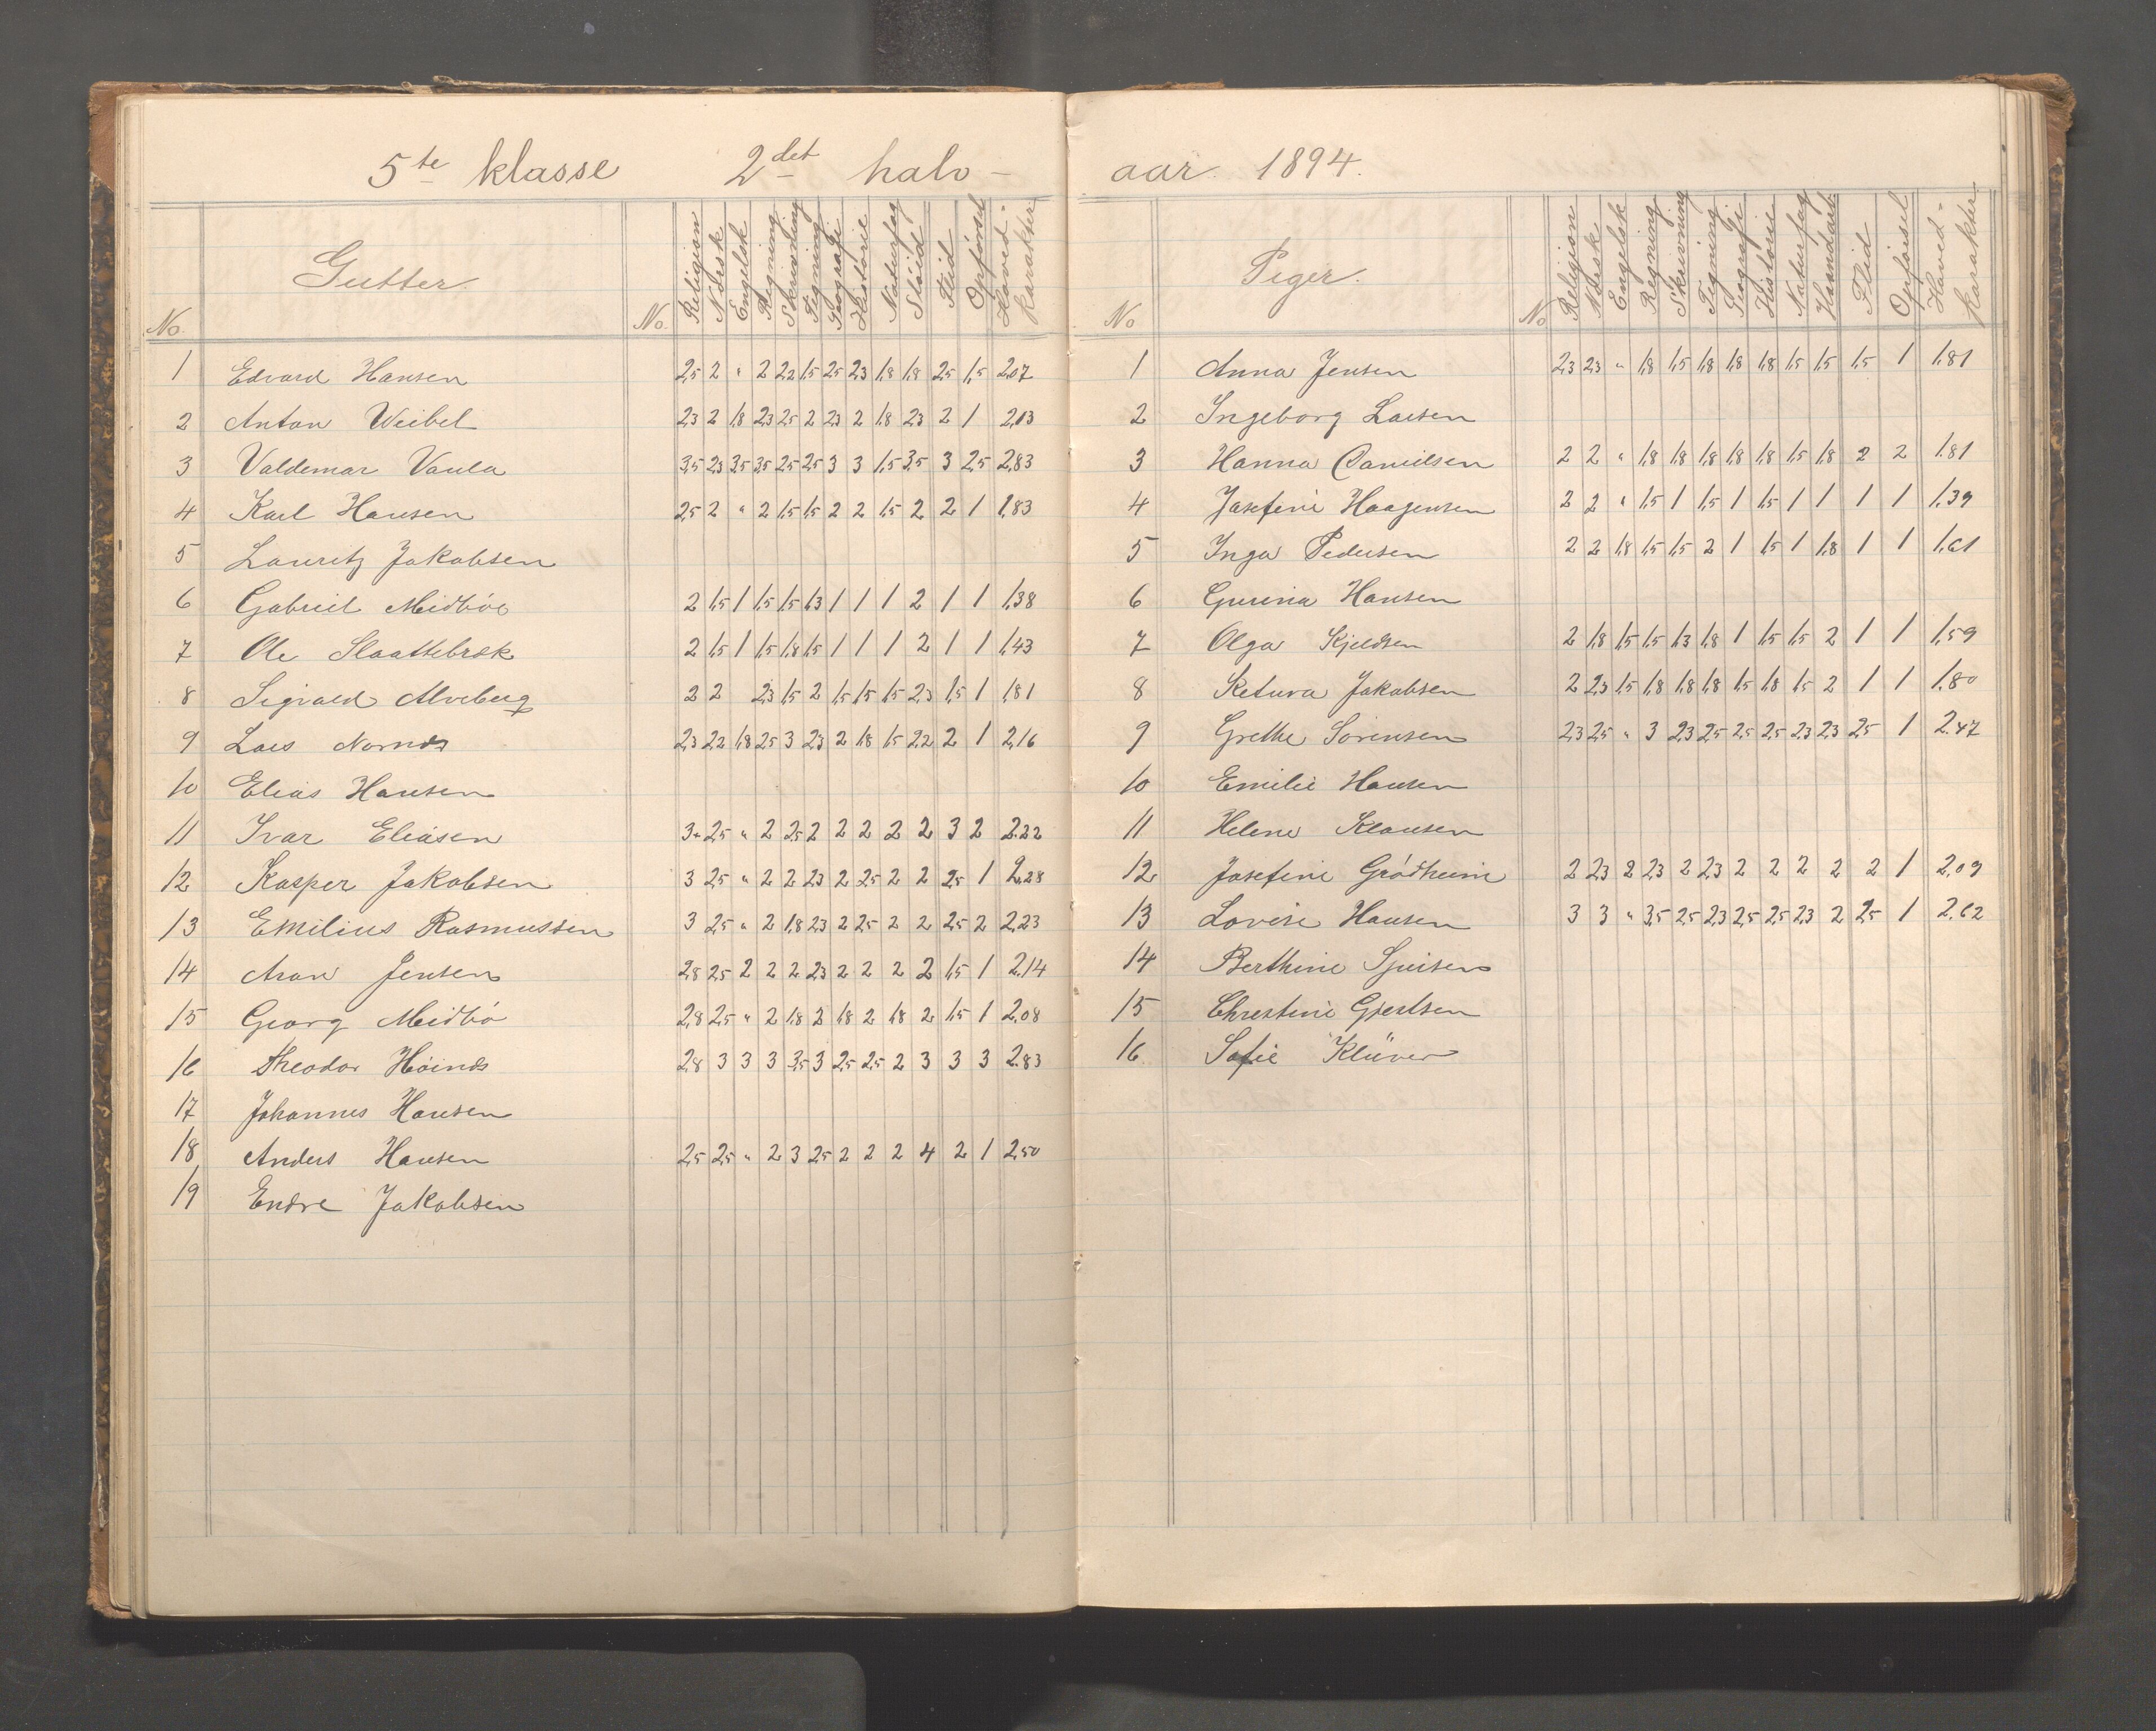 5te klasse 2det halv-
No. Gutter. No. Religion Norsk Engelsk Regning Skrivning Tegning Geografi Historie Naturfag Slöid Flid Opförsel Hoved-karakter
1 Edvard Hansen 2,5 2 " 2 2,2 1,5 2,5 2,3 1,8 1,8 2,5 1,5 2,07
2 Anton Weibel 2,3 2 1,8 2,3 2,5 2 2,3 2 1,8 2,3 2 1 2,13
3 Valdemar Vaula 3,5 2,3 3,5 3,5 2,5 2,5 3 3 1,5 3,5 3 2,5 2,83
4 Karl Hansen 2,5 2 " 2 1,5 1,5 2 2 1,5 2 2 1 1,83
5 Lauritz Jakobsen
6 Gabriel Midböe 2 1,5 1 1,5 1,5 1,3 1 1 1 2 1 1 1,38
7 Ole Slaattebrek 2 1,5 1 1,5 1,8 1,5 1 1 1 2 1 1 1,43
8 Sigvald Alveberg 2 2 2,3 1,5 2 1,5 1,5 1,5 2,3 1,5 1 1,81
9 Lars Nornes 2,3 2,2 1,8 2,5 3 2,3 2 1,8 1,5 2,2 2 1 2,16
10 Elias Hansen
11 Ivar Eliasen 3+ 2,5 " 2 2,5 2 2 2 2 2 3 2 2.22
12 Kasper Jakobsen 3 2,5 " 2 2 2,3 2 2,5 2 2 2,5 1 2,28
13 Emilius Rasmussen 3 2,5 " 2 1,8 2,3 2 2,5 2 2 2,5 2 2,23
14 Aron Jensen 2,8 2,5 2 2 2 2,3 2 2 2 2 1,5 1 2.14
15 Georg Midbö 2,8 2,5 " 2 1,8 2 1,8 2 1,8 2 1,5 1 2.08
16 Theodor Höines 2,8 3 3 3 3,5 3 2,5 2,5 2 3 3 3 2.83
17 Johannes Hansen
18 Anders Hansen 2,5 2,5 " 2 3 2,5 2 2 2 4 2 1 2,50
19 Endre Jakobsen
aar 1894.
No Piger. No Religion Norsk Engelsk Regning Skrivning Tegning Geografi Historie Naturfag Haandarb. Flid Opförsel Hoved-karakter
1 Anna Jensen 2,3 2,3 " 1,8 1,5 1,8 1,8 1,8 1,5 1,5 1,5 1 1.81
2 Ingeborg Larsen
3 Hanna Danielsen 2 2 " 1,8 1,8 1,8 1,8 1,8 1,5 1,8 2 2 1.81
4 Josefine Haagensen 2 2 " 1,5 1 1,5 1 1,5 1 1 1 1 1,39
5 Inga Pedersen 2 2 1,8 1,5 1,5 2 1 1,5 1 1,8 1 1 1,61
6 Gurina Hansen
7 Olga Kjeldsen 2 1,8 1,5 1,5 1,3 1,8 1 1,5 1,5 2 1 1 1,59
8 Ketura Jakobsen 2 2,3 1,5 1,8 1,8 1,8 1,5 1,8 1,5 2 1 1 1.80
9 Grethe Sörensen 2,3 2,5 " 3 2,3 2,5 2,5 2,5 2,3 2,3 2,5 1 2.47
10 Emilie Hansen
11 Helene Klausen
12 Josefine Grödheim 2 2,3 2 2,3 2 2,3 2 2 2 2 2 1 2,09
13 Lovise Hansen 3 3 " 3,5 2,5 2,3 2,5 2,5 2,3 2 2,5 1 2.62
14 Berthine Sjursen
15 Christine Gjertsen
16 Sofie Klüver